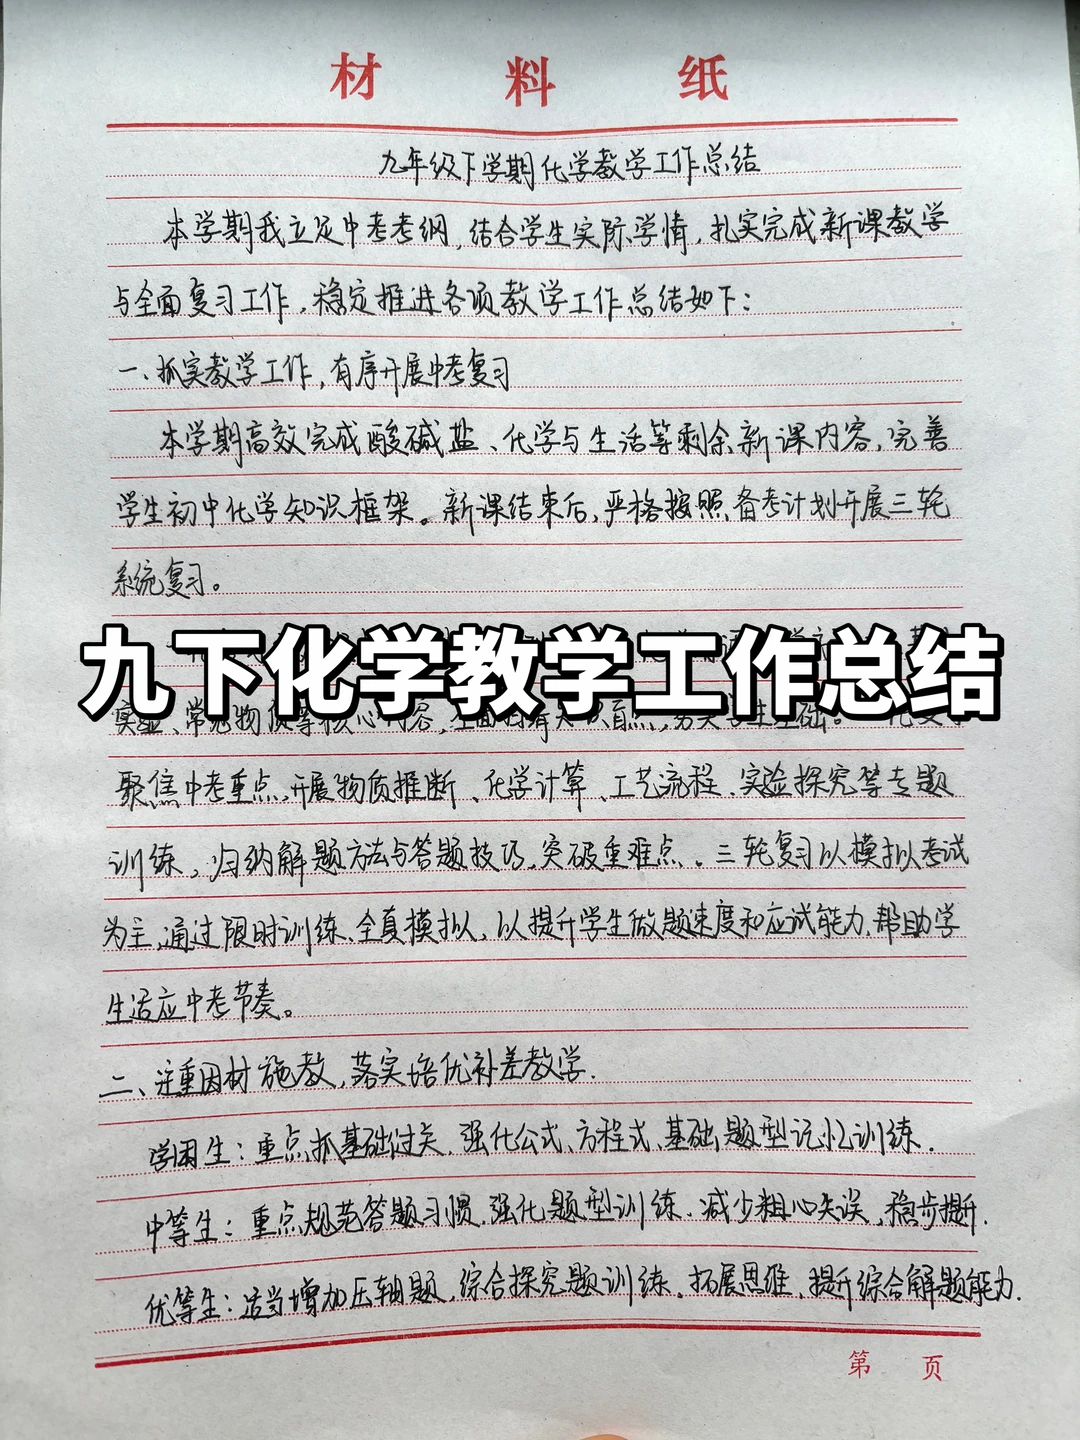 材料纸
九年级下学期化学教学工作总结
本学期我立足中考考纲,结合学生实际学情,扎实完成新课教学
与全面复习工作,稳定推进各项教学工作总结如下:
一、抓实教学工作,有序开展中考复习
本学期高效完成酸碱盐、化学与生活等剩余新课内容,完善
学生初中化学知识框架。新课结束后,严格按照备考计划开展三轮
系统复习。
九下化学教学工作总结
实验、常见物质等核心内容,全面扫盲点,夯实学生基础。
聚焦中考重点,开展物质推断、化学计算、工艺流程、实验探究等专题
训练,归纳解题方法与答题技巧,突破重难点。三轮复习以模拟考试
为主,通过限时训练、全真模拟,以提升学生做题速度和应试能力,帮助学
生适应中考节奏。
二、注重因材施教,落实培优补差教学.
学困生:重点抓基础过关,强化公式、方程式、基础题型记忆训练.
中等生:重点规范答题习惯,强化题型训练.减少粗心失误,稳步提升.
优等生:适当增加压轴题,综合探究题训练.拓展思维,提升综合解题能力.
第 页